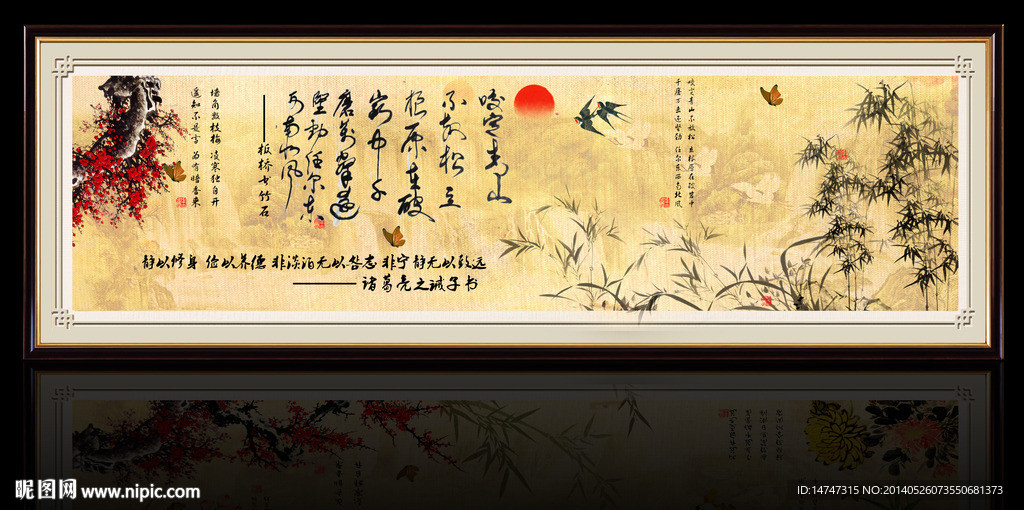 咬定青山不放松 立根原在破岩中
千磨万击还坚劲 任尔东西南北风
咬定青山
不放松立
根原在破
岩中千
磨萬擊還
堅勁任尔东
西南北风
——板桥书竹石
墙角数枝梅 凌寒独自开
遥知不是雪 为有暗香来
静以修身 俭以养德 非淡泊无以明志 非宁静无以致远
——诸葛亮之诫子书
昵图网 www.nipic.com
ID:14747315 NO:20140526073550681373